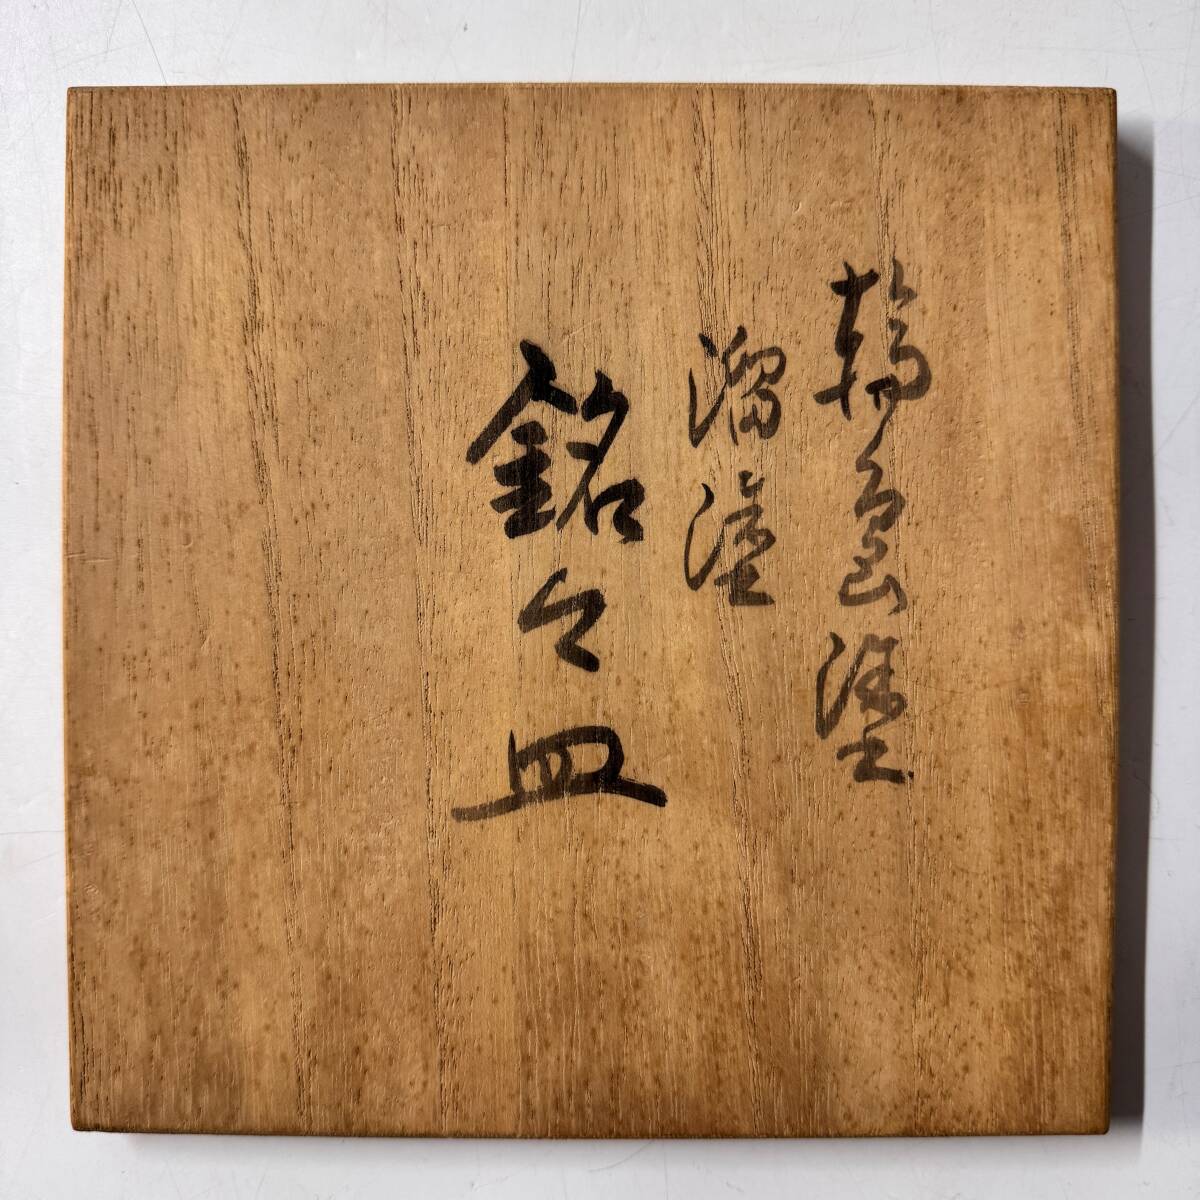 輪島塗
溜塗
銘々皿